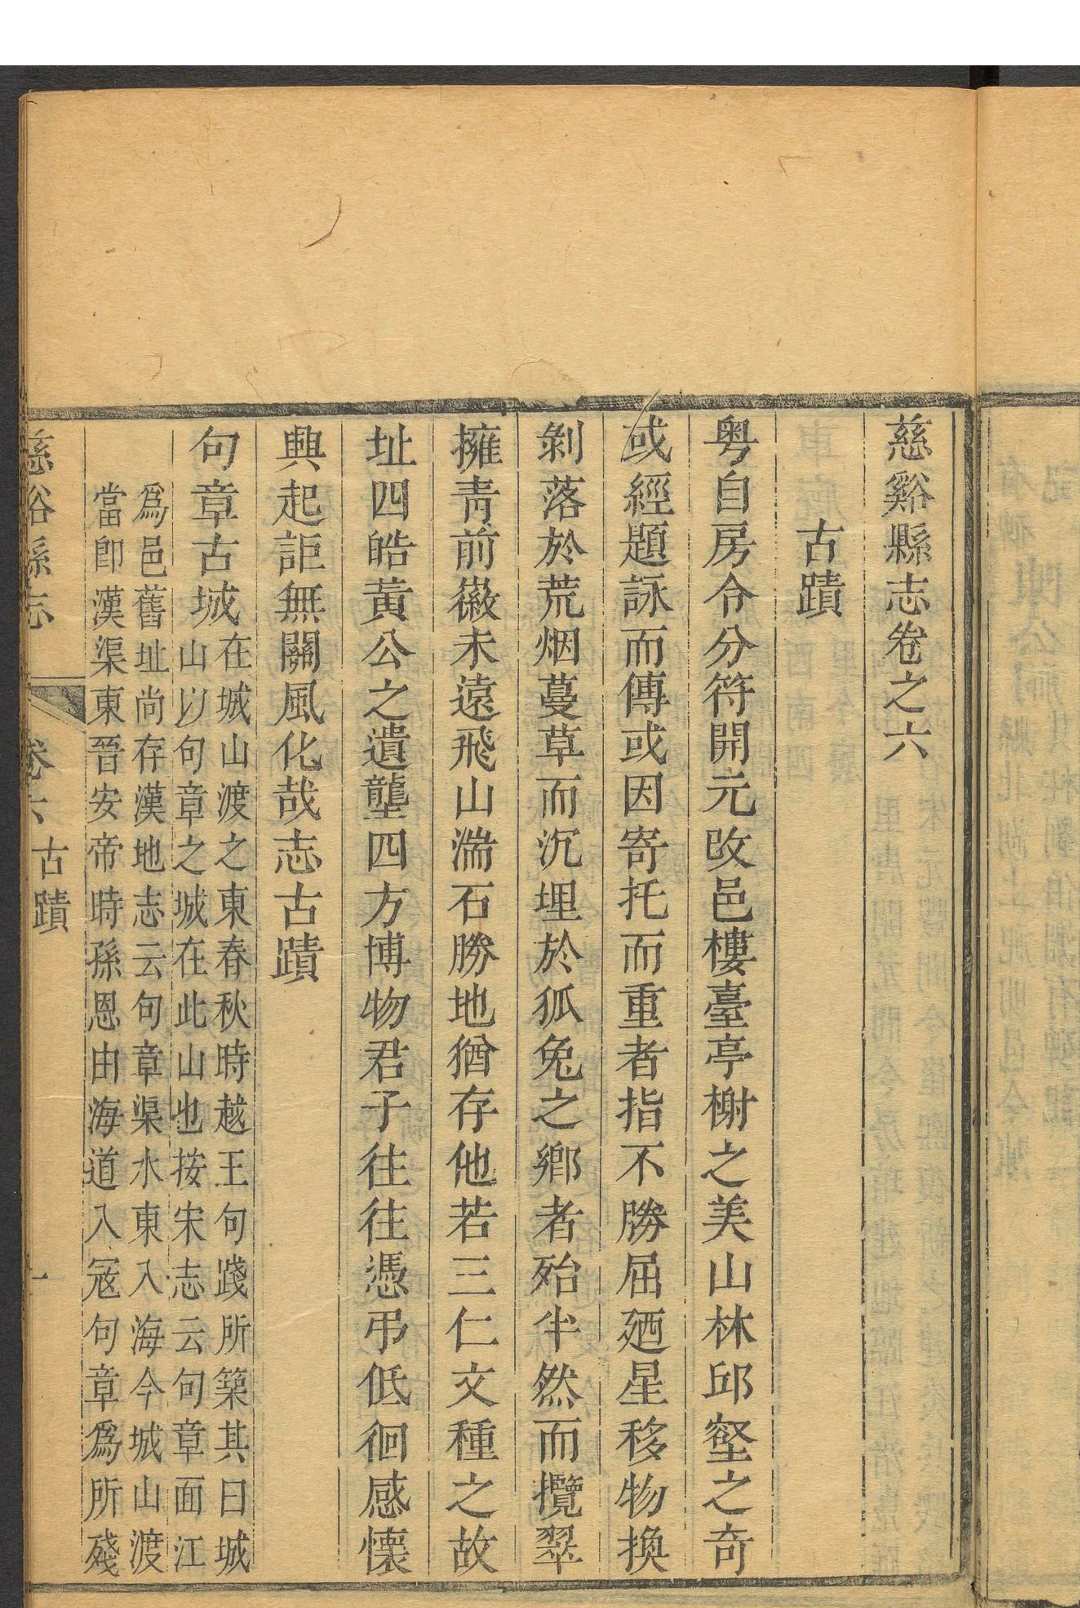 慈谿縣志卷之六
古蹟
粤自房令分符開元改邑樓臺亭榭之美山林邱壑之奇
或經題詠而傳或因寄托而重者指不勝屈廼星移物換
剝落於荒烟蔓草而沉埋於狐兔之鄉者殆半然而攬翠
擁青前徽未遠飛山湍石勝地猶存他若三仁文種之故
址四皓黃公之遺壟四方博物君子往往憑弔低徊感懷
興起詎無關風化哉志古蹟
句章古城
在城山渡之東春秋時越王句踐所築其曰城
山以句章之城在此山也按宋志云句章面江
為邑舊址尚存漢地志云句章渠水東入海今城山渡
當卽漢渠東晉安帝時孫恩由海道入寇句章為所殘
慈谿縣志
卷六
古蹟
一